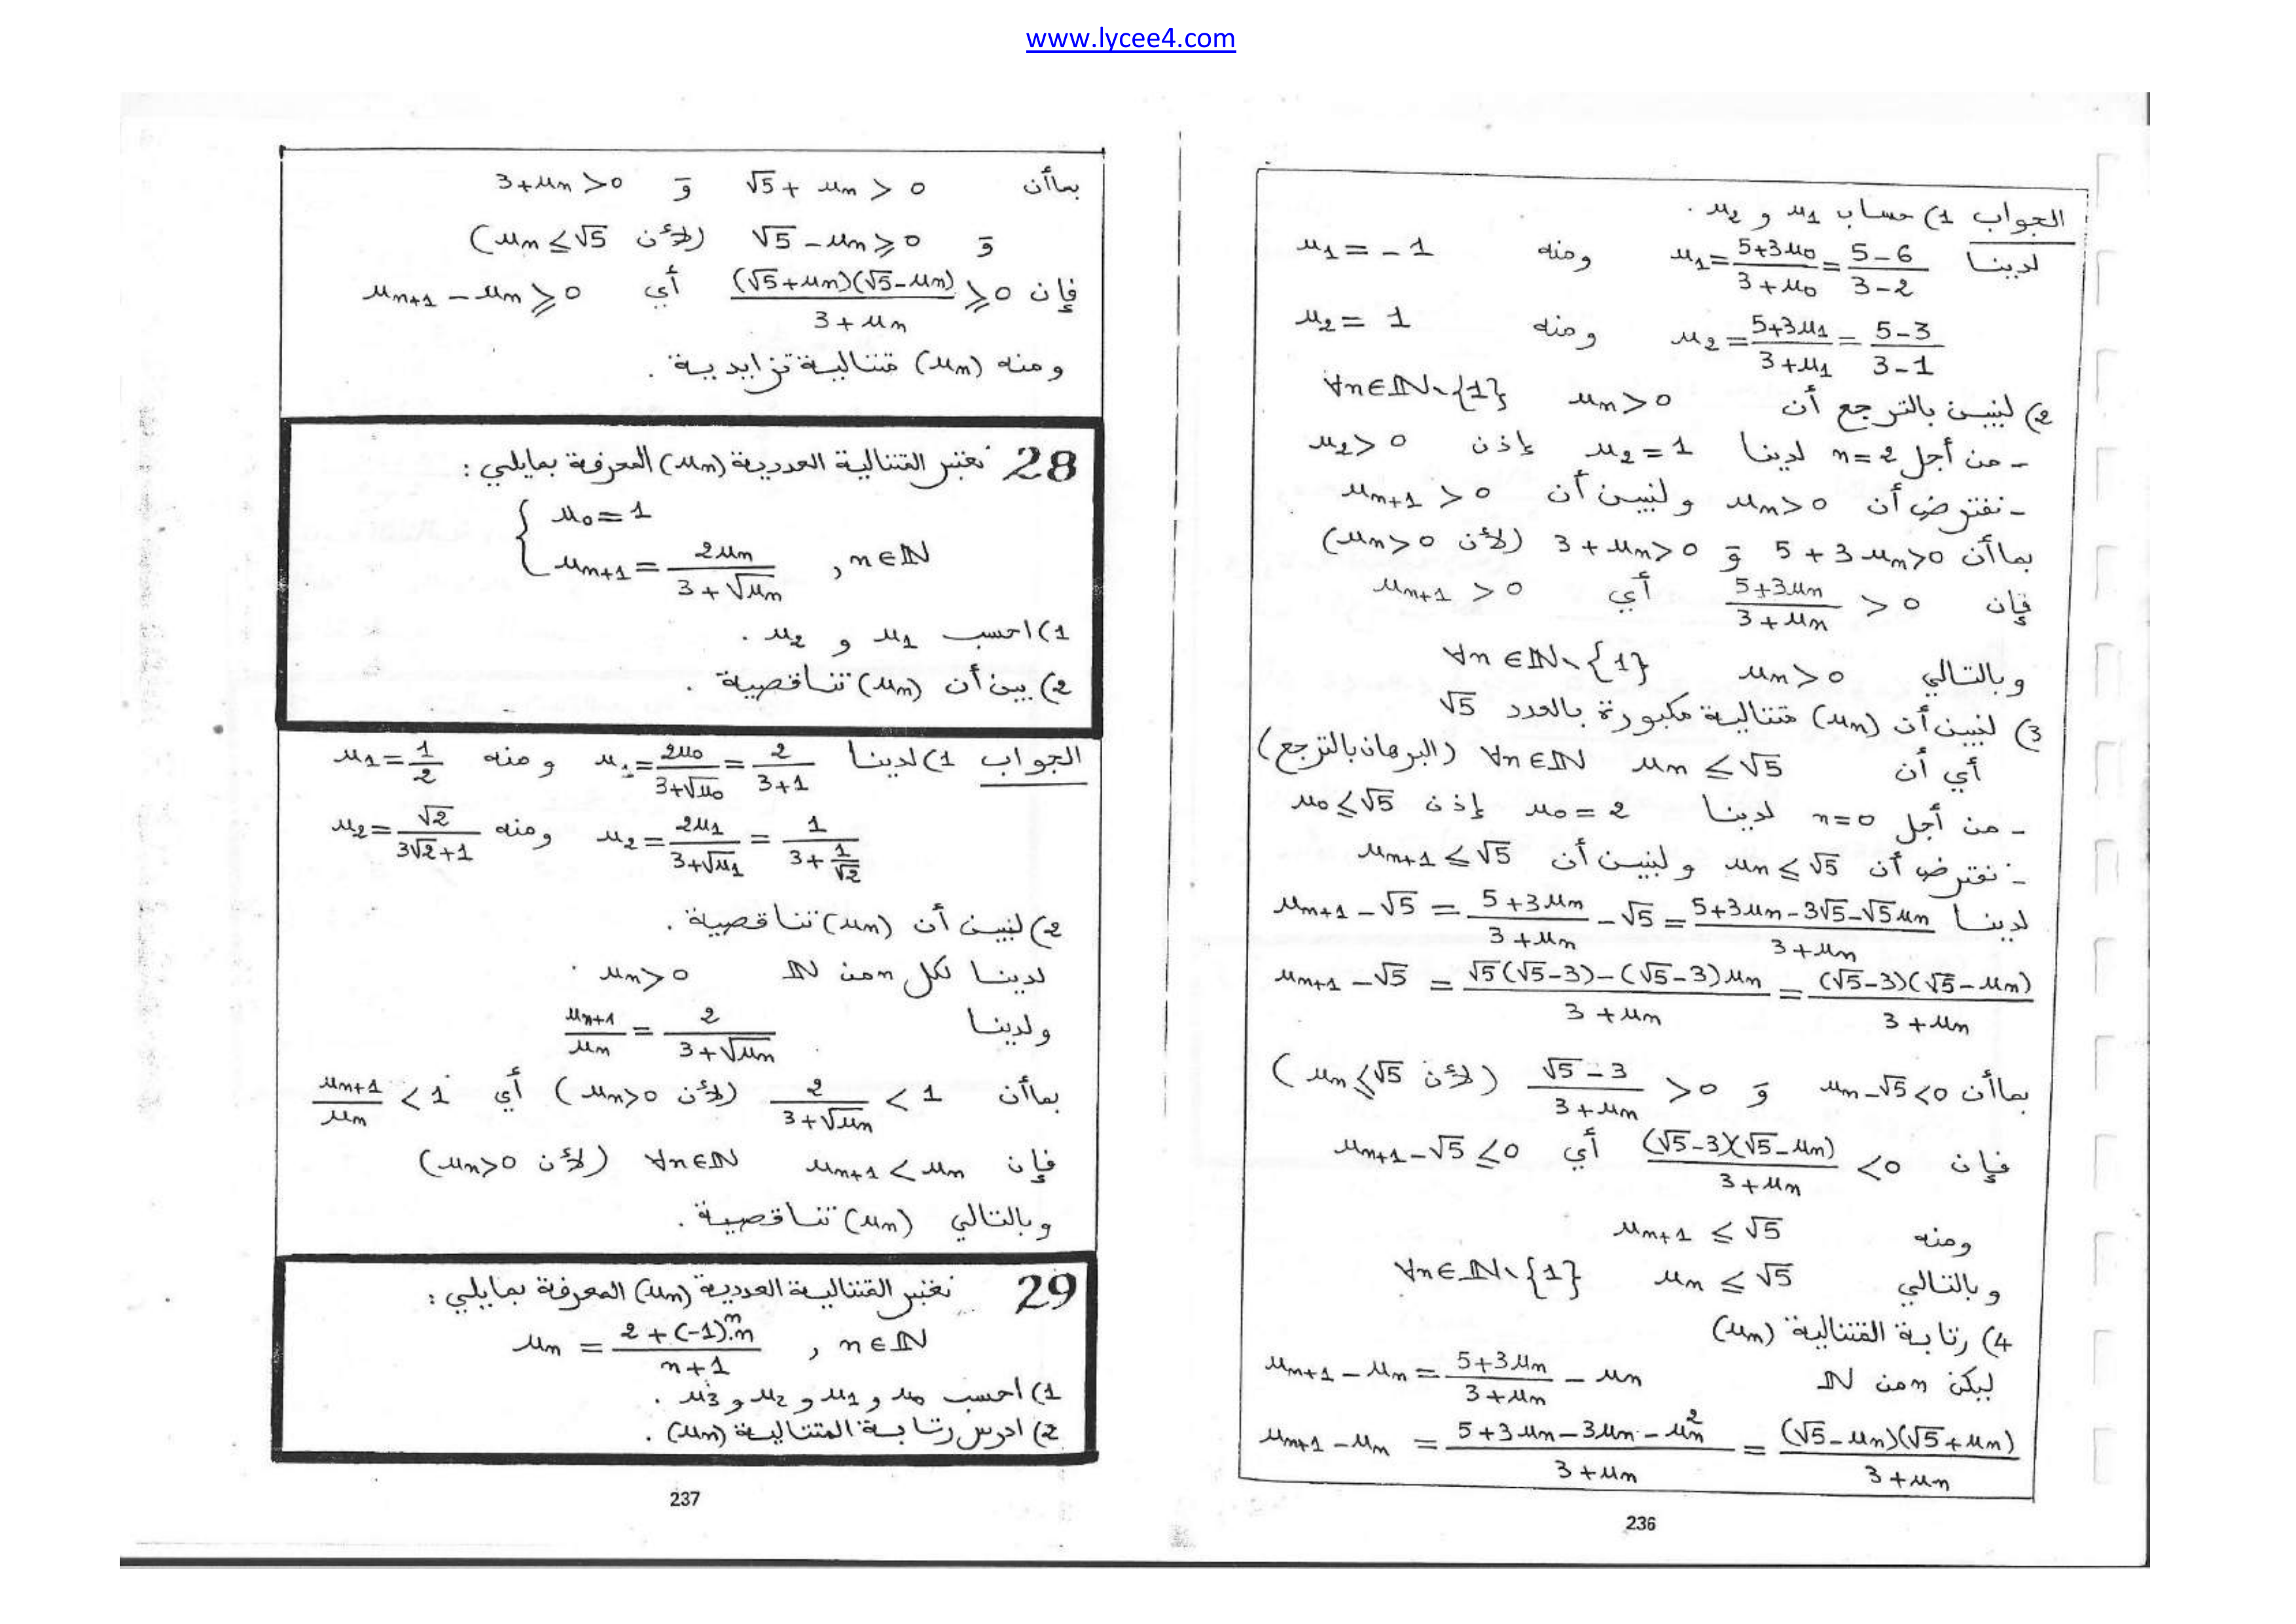 www.lycee4.com
الجواب 1) حساب u₁ و u₂ .
لدينا u₁ = (5+3u₀)/(3+u₀) = (5-6)/(3-2) ومنه u₁ = -1
u₂ = (5+3u₁)/(3+u₁) = (5-3)/(3-1) ومنه u₂ = 1
2) لنبين بالترجع أن uₙ > 0 ∀n∈ℕ\{1}
- من أجل n=2 لدينا u₂ = 1 إذن u₂ > 0
- نفترض أن uₙ > 0 ولنبين أن uₙ₊₁ > 0
بماأن 5+3uₙ>0 و 3+uₙ>0 (لأن uₙ>0)
فإن (5+3uₙ)/(3+uₙ) > 0 أي uₙ₊₁ > 0
وبالتالي uₙ > 0 ∀n∈ℕ\{1}
3) لنبين أن (uₙ) متتالية مكبورة بالعدد √5
أي أن uₙ ≤ √5 ∀n∈ℕ (البرهان بالترجع)
- من أجل n=0 لدينا u₀ = 2 إذن u₀ ≤ √5
- نفترض أن uₙ ≤ √5 ولنبين أن uₙ₊₁ ≤ √5
لدينا uₙ₊₁ - √5 = (5+3uₙ)/(3+uₙ) - √5 = (5+3uₙ-3√5-√5uₙ)/(3+uₙ)
uₙ₊₁ - √5 = (√5(√5-3)-(√5-3)uₙ)/(3+uₙ) = ((√5-3)(√5-uₙ))/(3+uₙ)
بماأن uₙ-√5<0 و (√5-3)/(3+uₙ) > 0 (لأن uₙ≤√5)
فإن ((√5-3)(√5-uₙ))/(3+uₙ) < 0 أي uₙ₊₁-√5 ≤ 0
ومنه uₙ₊₁ ≤ √5
وبالتالي uₙ ≤ √5 ∀n∈ℕ\{1}
4) رتابة المتتالية (uₙ)
ليكن n من ℕ uₙ₊₁ - uₙ = (5+3uₙ)/(3+uₙ) - uₙ
uₙ₊₁ - uₙ = (5+3uₙ-3uₙ-uₙ²)/(3+uₙ) = ((√5-uₙ)(√5+uₙ))/(3+uₙ)
236
بماأن √5+uₙ > 0 و 3+uₙ > 0
و √5-uₙ ≥ 0 (لأن uₙ ≤ √5)
فإن ((√5+uₙ)(√5-uₙ))/(3+uₙ) ≥ 0 أي uₙ₊₁ - uₙ ≥ 0
ومنه (uₙ) متتالية تزايدية .
28 نعتبر المتتالية العددية (uₙ) المعرفة بمايلي :
u₀ = 1
uₙ₊₁ = 2uₙ/(3+√uₙ) , n∈ℕ
1) احسب u₁ و u₂ .
2) بين أن (uₙ) تناقصية .
الجواب 1) لدينا u₁ = 2u₀/(3+√u₀) = 2/(3+1) ومنه u₁ = 1/2
u₂ = 2u₁/(3+√u₁) = 1/(3+1/√2) ومنه u₂ = √2/(3√2+1)
2) لنبين أن (uₙ) تناقصية .
لدينا لكل n من ℕ uₙ>0 .
ولدينا uₙ₊₁/uₙ = 2/(3+√uₙ)
بماأن 2/(3+√uₙ) < 1 (لأن uₙ>0) أي uₙ₊₁/uₙ < 1
فإن uₙ₊₁ < uₙ ∀n∈ℕ (لأن uₙ>0)
وبالتالي (uₙ) تناقصية .
29 نعتبر المتتالية العددية (uₙ) المعرفة بمايلي :
uₙ = (2+(-1)ⁿ.n)/(n+1) , n∈ℕ
1) احسب u₀ و u₁ و u₂ و u₃ .
2) ادرس رتابة المتتالية (uₙ) .
237